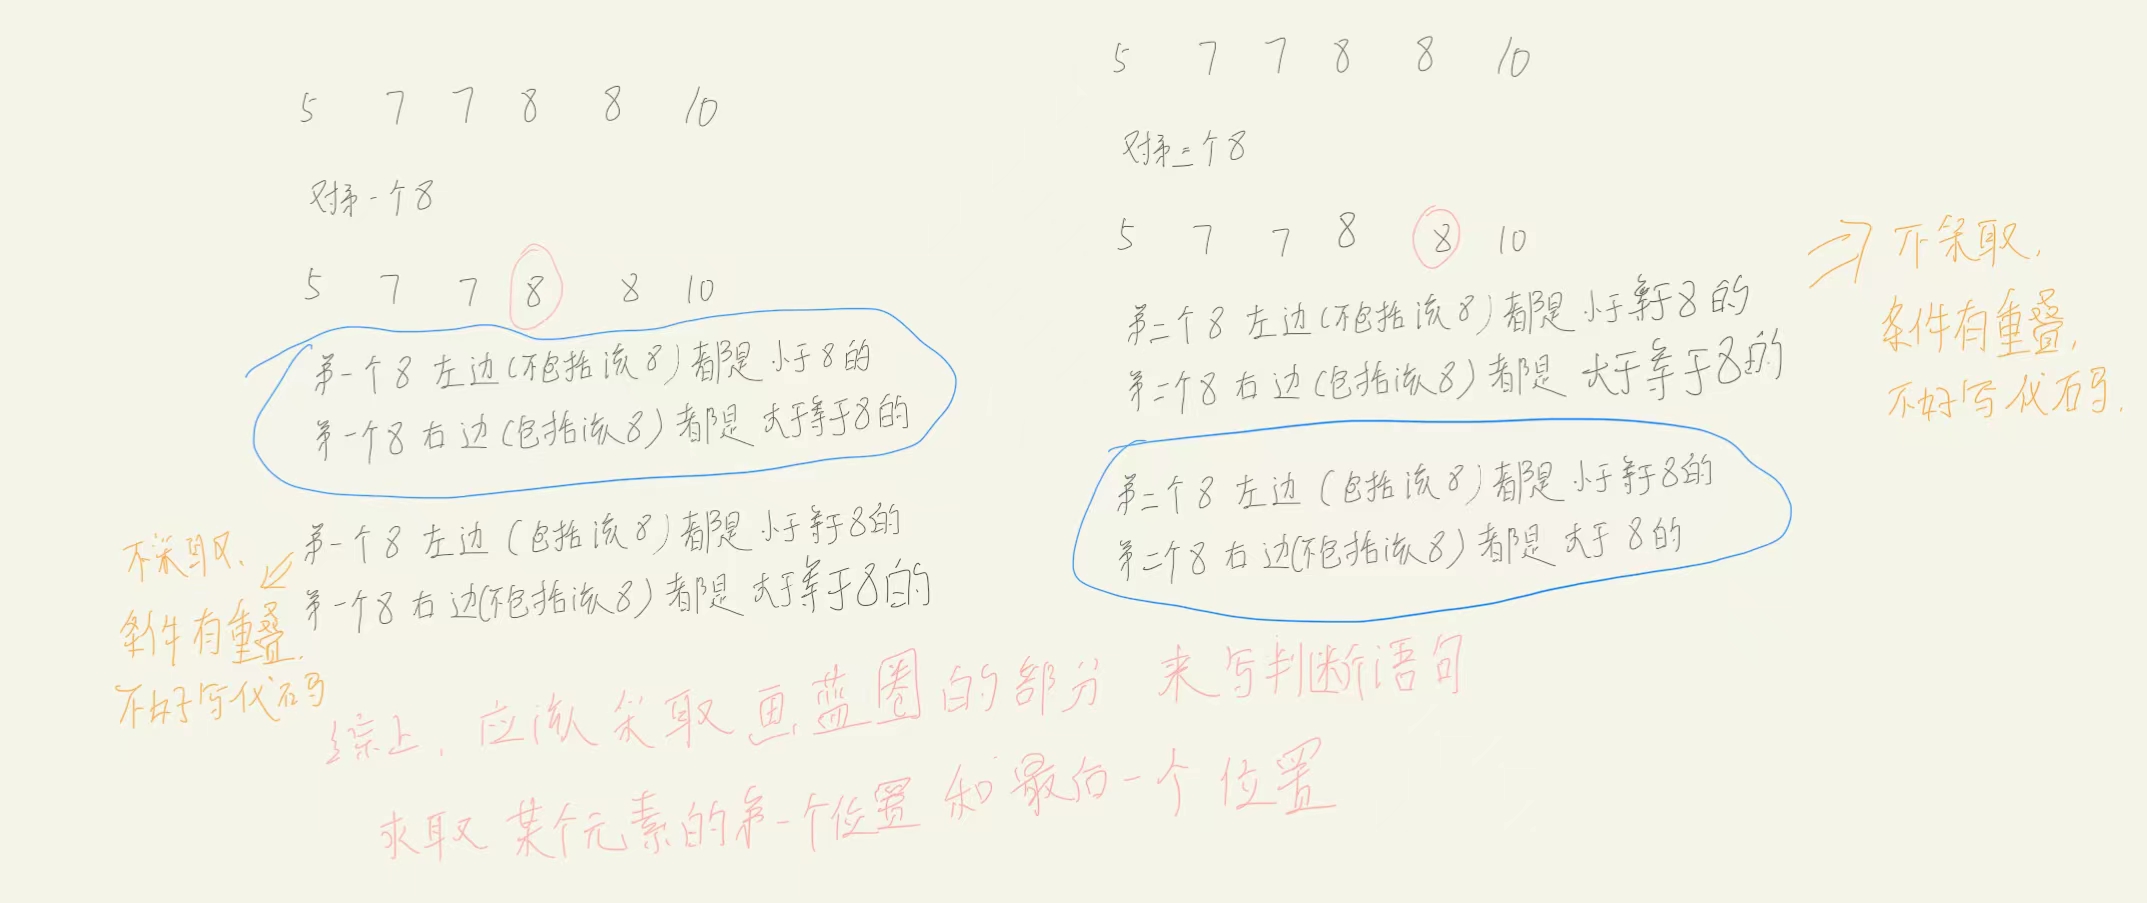 5 7 7 8 8 10
对第一个8
5 7 7 8 8 10
第一个8 左边(不包括该8)都是 小于8的
第一个8 右边(包括该8)都是 大于等于8的
第一个8 左边(包括该8)都是 小于等于8的
第一个8 右边(不包括该8)都是 大于等于8的
不采取、
条件有重叠.
不好写代码
5 7 7 8 8 10
对第二个8
5 7 7 8 8 10
第二个8 左边(不包括该8)都是 小于等于8的
第二个8 右边(包括该8)都是 大于等于8的
不采取,
条件有重叠,
不好写代码.
第二个8 左边(包括该8)都是 小于等于8的
第二个8 右边(不包括该8)都是 大于8的
综上, 应该采取画蓝圈的部分 来写判断语句
求取 某个元素的第一个位置 和最后一个位置